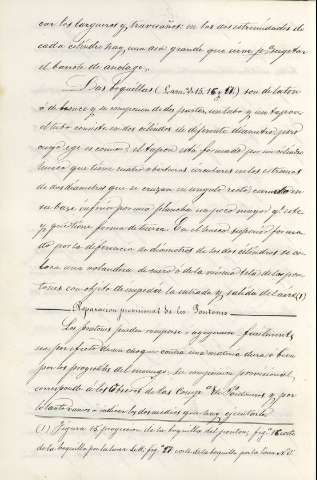 con los largueros y travesaños: en las dos estremidades de
cada cilindro hay una asa grande que sirve p.ª sugetar
el barrote de anclage.
Las boquillas (Lam.ª 15, 16 y 17) son de laton
ó de bronce y se componen de dos partes, un tubo y un tapon
el tubo consiste en dos cilindros de diferente diametro pero
cuyo eje es comun: el tapon esta formado por un cilindro
hueco que tiene cuatro aberturas circulares en los estremos
de dos diametros que se cruzan en angulo recto
su base inferior por una plancha un poco mayor q.e este
y que tiene forma de tuerca. En el hueco superior forma-
do por la diferencia de diametros de los dos cilindros se co-
loca una volandera de cuero ó de la misma tela de los pon-
tones con objeto de impedir la entrada y salida del aire (1)
Reparacion provisional de los Pontones
Los pontones pueden romperse ó agugerearse facilment.e
sea por efecto de un choque contra una materia dura ó bien
por los progresos del manejo: su compostura provisional,
corresponde á los Obreros de las Comp.as de Pontoneros y por
lo tanto vamos á indicar los dos medios que hay de ejecutarla.
(1) Figura 15 proyeccion de la boquilla del ponton; fig.ª 16 corte
de la boquilla por la linea ; fig.ª 17 corte de la boquilla por la linea